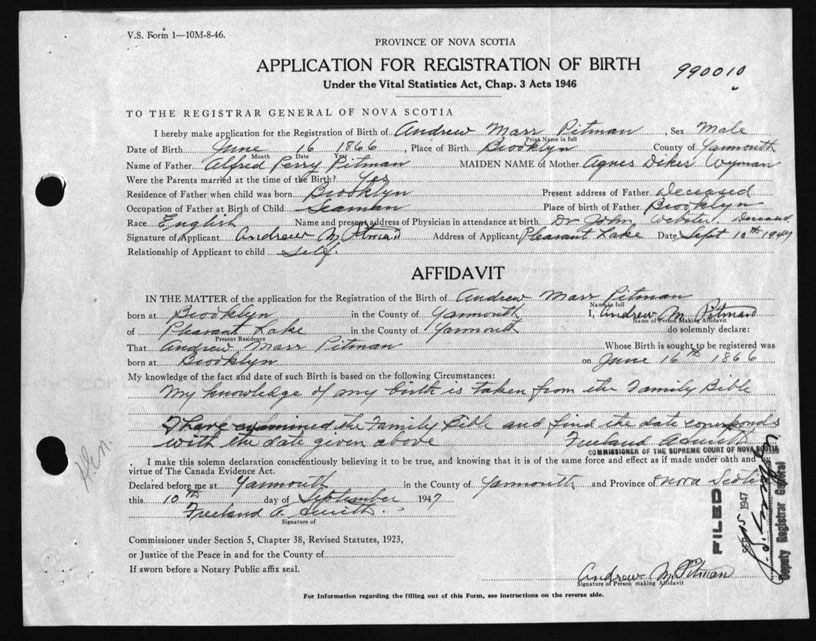 V.S. Form 1—10M-8-46.
PROVINCE OF NOVA SCOTIA
APPLICATION FOR REGISTRATION OF BIRTH
990010
Under the Vital Statistics Act, Chap. 3 Acts 1946
TO THE REGISTRAR GENERAL OF NOVA SCOTIA
I hereby make application for the Registration of Birth of Andrew Marr Pitman, Sex Male
Print Name in full
Date of Birth June 16 1866, Place of Birth Brooklyn County of Yarmouth
Month Date Year
Name of Father Alfred Perry Pitman MAIDEN NAME of Mother Agnes Dikes Wyman
Were the Parents married at the time of the Birth? Yes
Residence of Father when child was born Brooklyn Present address of Father Deceased
Occupation of Father at Birth of Child Seaman Place of birth of Father Brooklyn
Race English Name and present address of Physician in attendance at birth Dr John Webster. Deceased
Signature of Applicant Andrew M Pitman Address of Applicant Pleasant Lake Date Sept 10th 1947
Relationship of Applicant to child Self.
AFFIDAVIT
IN THE MATTER of the application for the Registration of the Birth of Andrew Marr Pitman
Name in full
born at Brooklyn in the County of Yarmouth I, Andrew M. Pitman
Name of Person Making Affidavit
of Pleasant Lake in the County of Yarmouth do solemnly declare:
Present Residence
That Andrew Marr Pitman Whose Birth is sought to be registered was
born at Brooklyn on June 16th 1866
My knowledge of the fact and date of such Birth is based on the following Circumstances:
My knowledge of my birth is taken from the Family Bible
I have examined the Family Bible and find the date corresponds
with the date given above Freeland A Smith
COMMISSIONER OF THE SUPREME COURT OF NOVA SCOTIA
I make this solemn declaration conscientiously believing it to be true, and knowing that it is of the same force and effect as if made under oath and by
virtue of The Canada Evidence Act.
Declared before me at Yarmouth in the County of Yarmouth and Province of Nova Scotia
this 10th day of September 1947
Freeland A. Smith
Signature of
Commissioner under Section 5, Chapter 38, Revised Statutes, 1923,
or Justice of the Peace in and for the County of
If sworn before a Notary Public affix seal.
Andrew M Pitman
Signature of Person making Affidavit
For Information regarding the filling out of this Form, see instructions on the reverse side.
FILED
SEP 15 1947
Deputy Registrar General